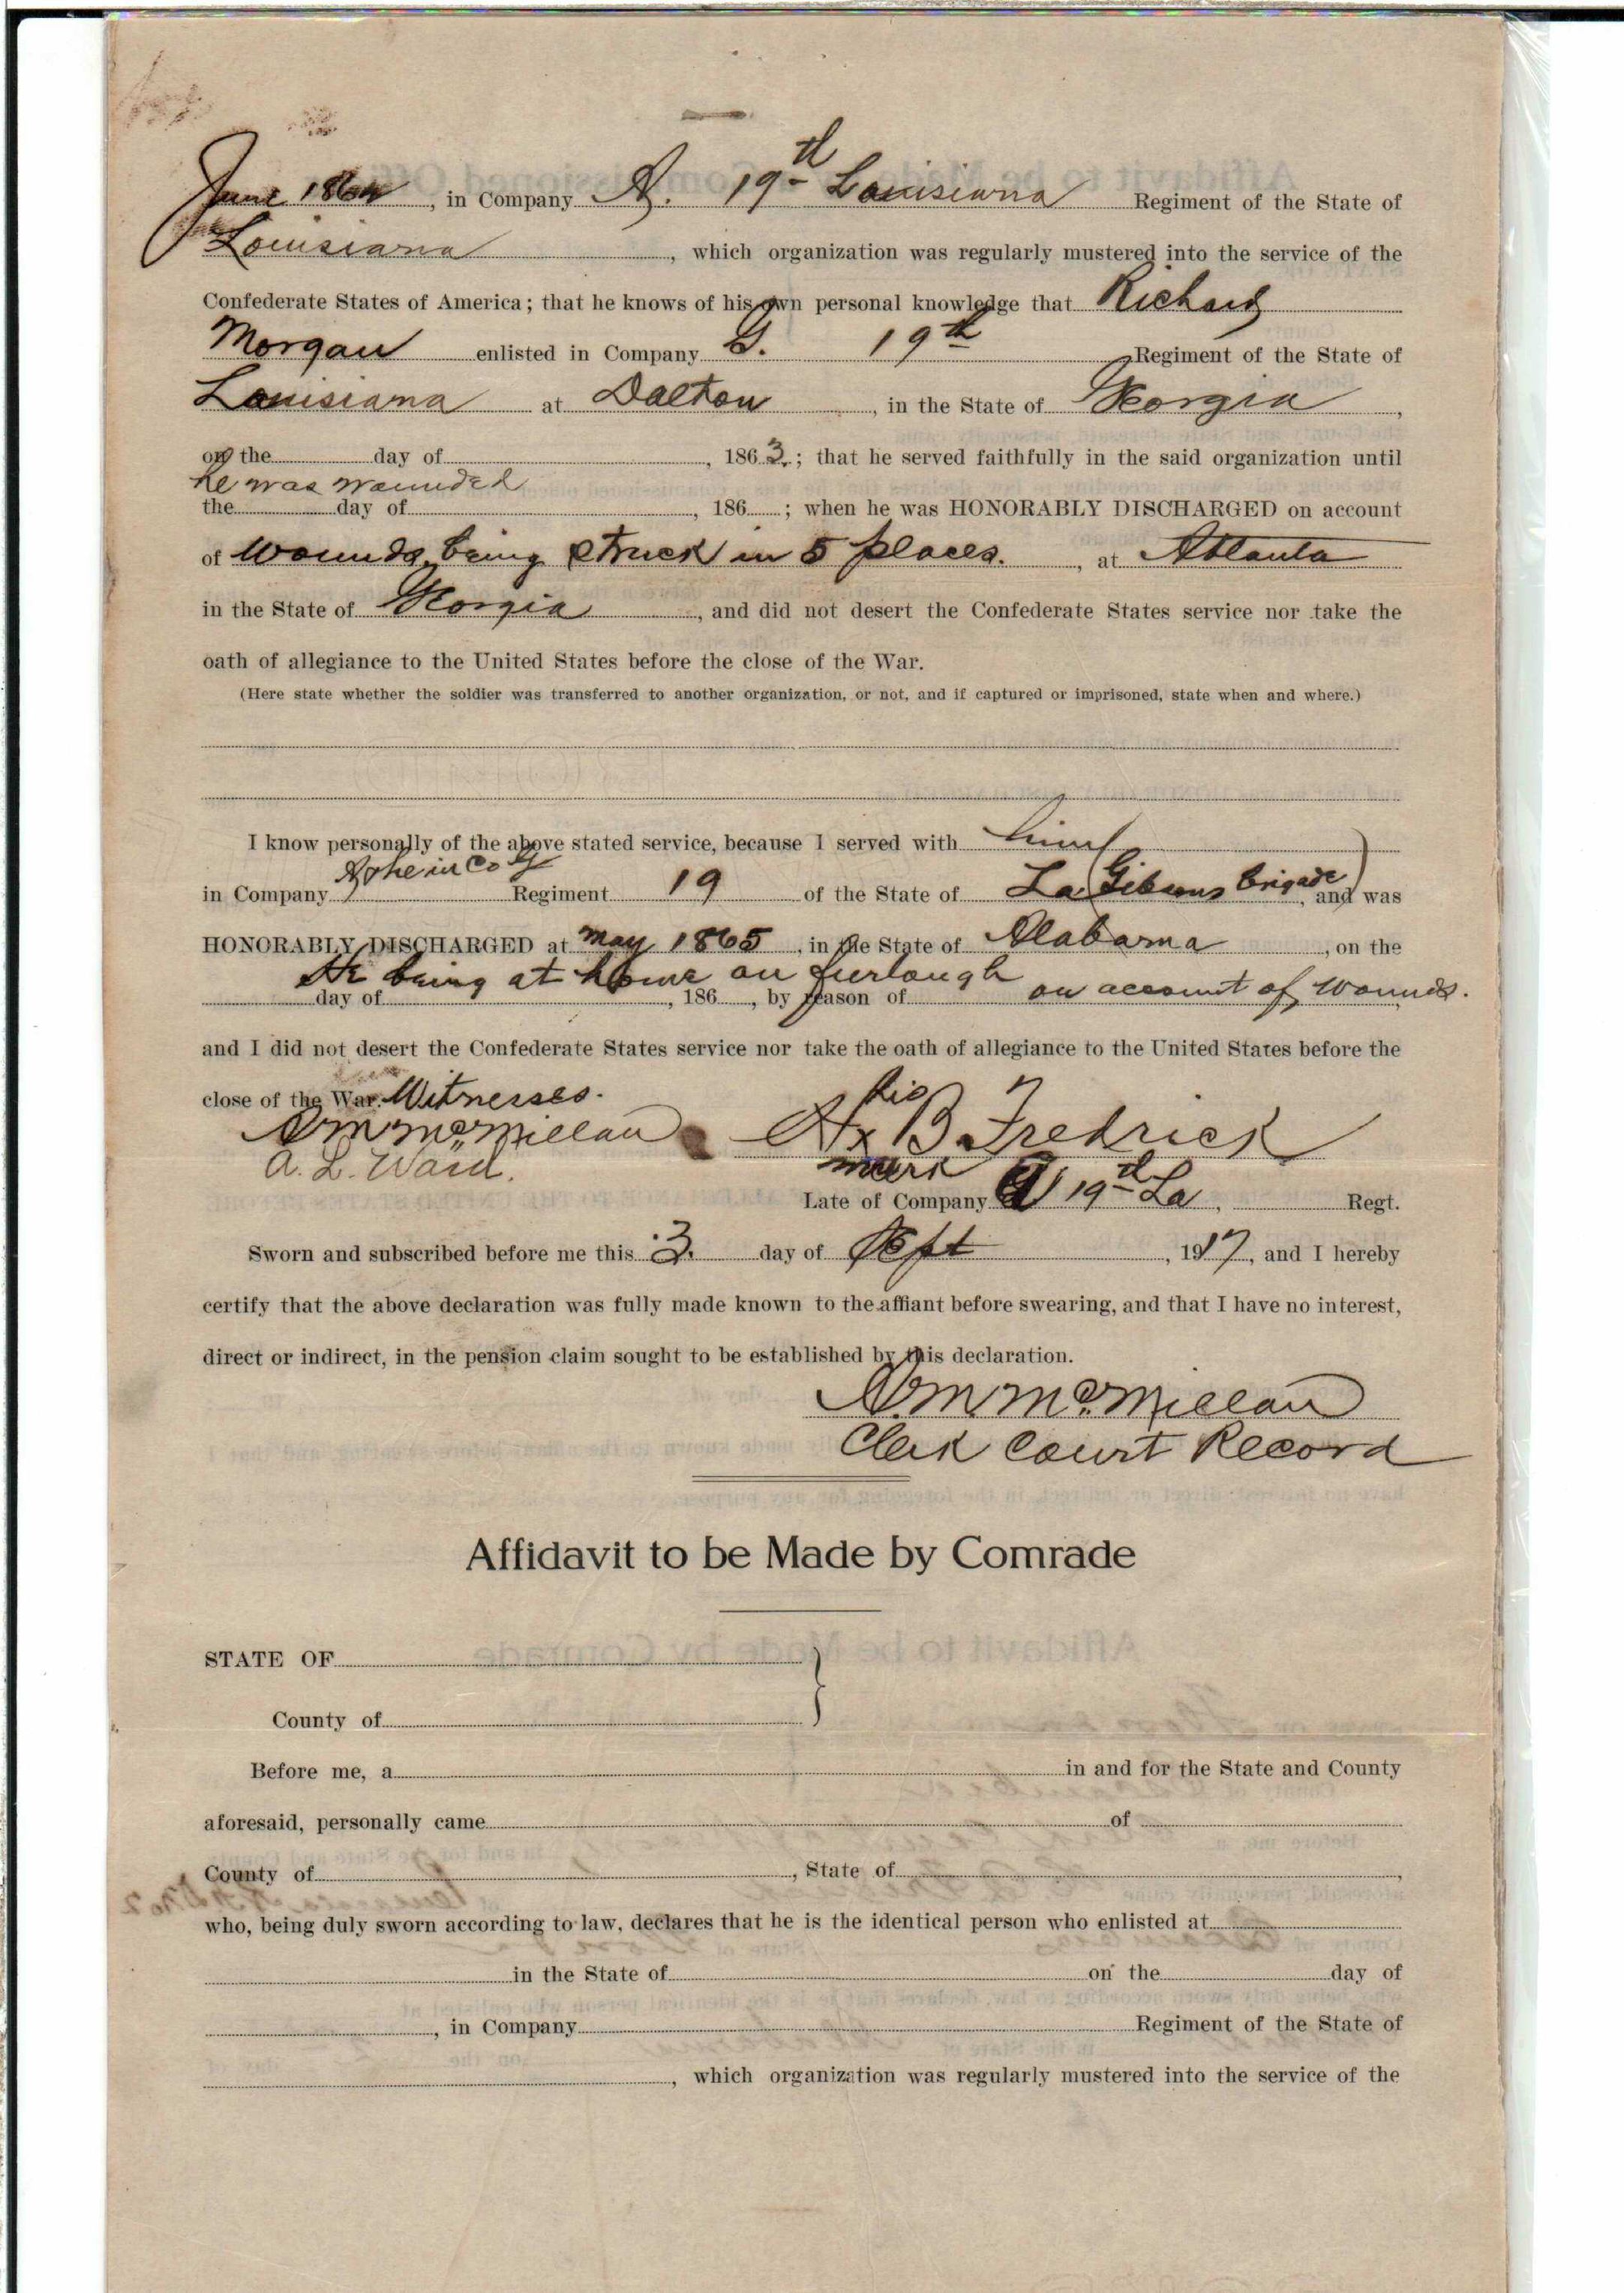 June 1864, in Company A. 19th Louisiana Regiment of the State of
Louisiana, which organization was regularly mustered into the service of the
Confederate States of America; that he knows of his own personal knowledge that Richard
Morgan enlisted in Company G. 19th Regiment of the State of
Louisiana at Dalton, in the State of Georgia,
on the day of, 1863; that he served faithfully in the said organization until
he was wounded
the day of, 186; when he was HONORABLY DISCHARGED on account
of Wounds, being struck in 5 places., at Atlanta
in the State of Georgia, and did not desert the Confederate States service nor take the
oath of allegiance to the United States before the close of the War.
(Here state whether the soldier was transferred to another organization, or not, and if captured or imprisoned, state when and where.)
I know personally of the above stated service, because I served with him
in Company A, he in Co G Regiment 19 of the State of La (Gibsons brigade), and was
HONORABLY DISCHARGED at May 1865, in the State of Alabama, on the
He being at home on furlough on account of wounds.
day of, 186, by reason of
and I did not desert the Confederate States service nor take the oath of allegiance to the United States before the
close of the War. Witnesses.
A M McMillan
A. L. Ward.
his
A x B. Fredrick
mark
Late of Company 19th La, Regt.
Sworn and subscribed before me this 3. day of Sept, 1917, and I hereby
certify that the above declaration was fully made known to the affiant before swearing, and that I have no interest,
direct or indirect, in the pension claim sought to be established by this declaration.
A. M. McMillan
Clerk Court Record
Affidavit to be Made by Comrade
STATE OF
County of
Before me, a in and for the State and County
aforesaid, personally came of
County of, State of,
who, being duly sworn according to law, declares that he is the identical person who enlisted at
in the State of on the day of
, in Company Regiment of the State of
, which organization was regularly mustered into the service of the